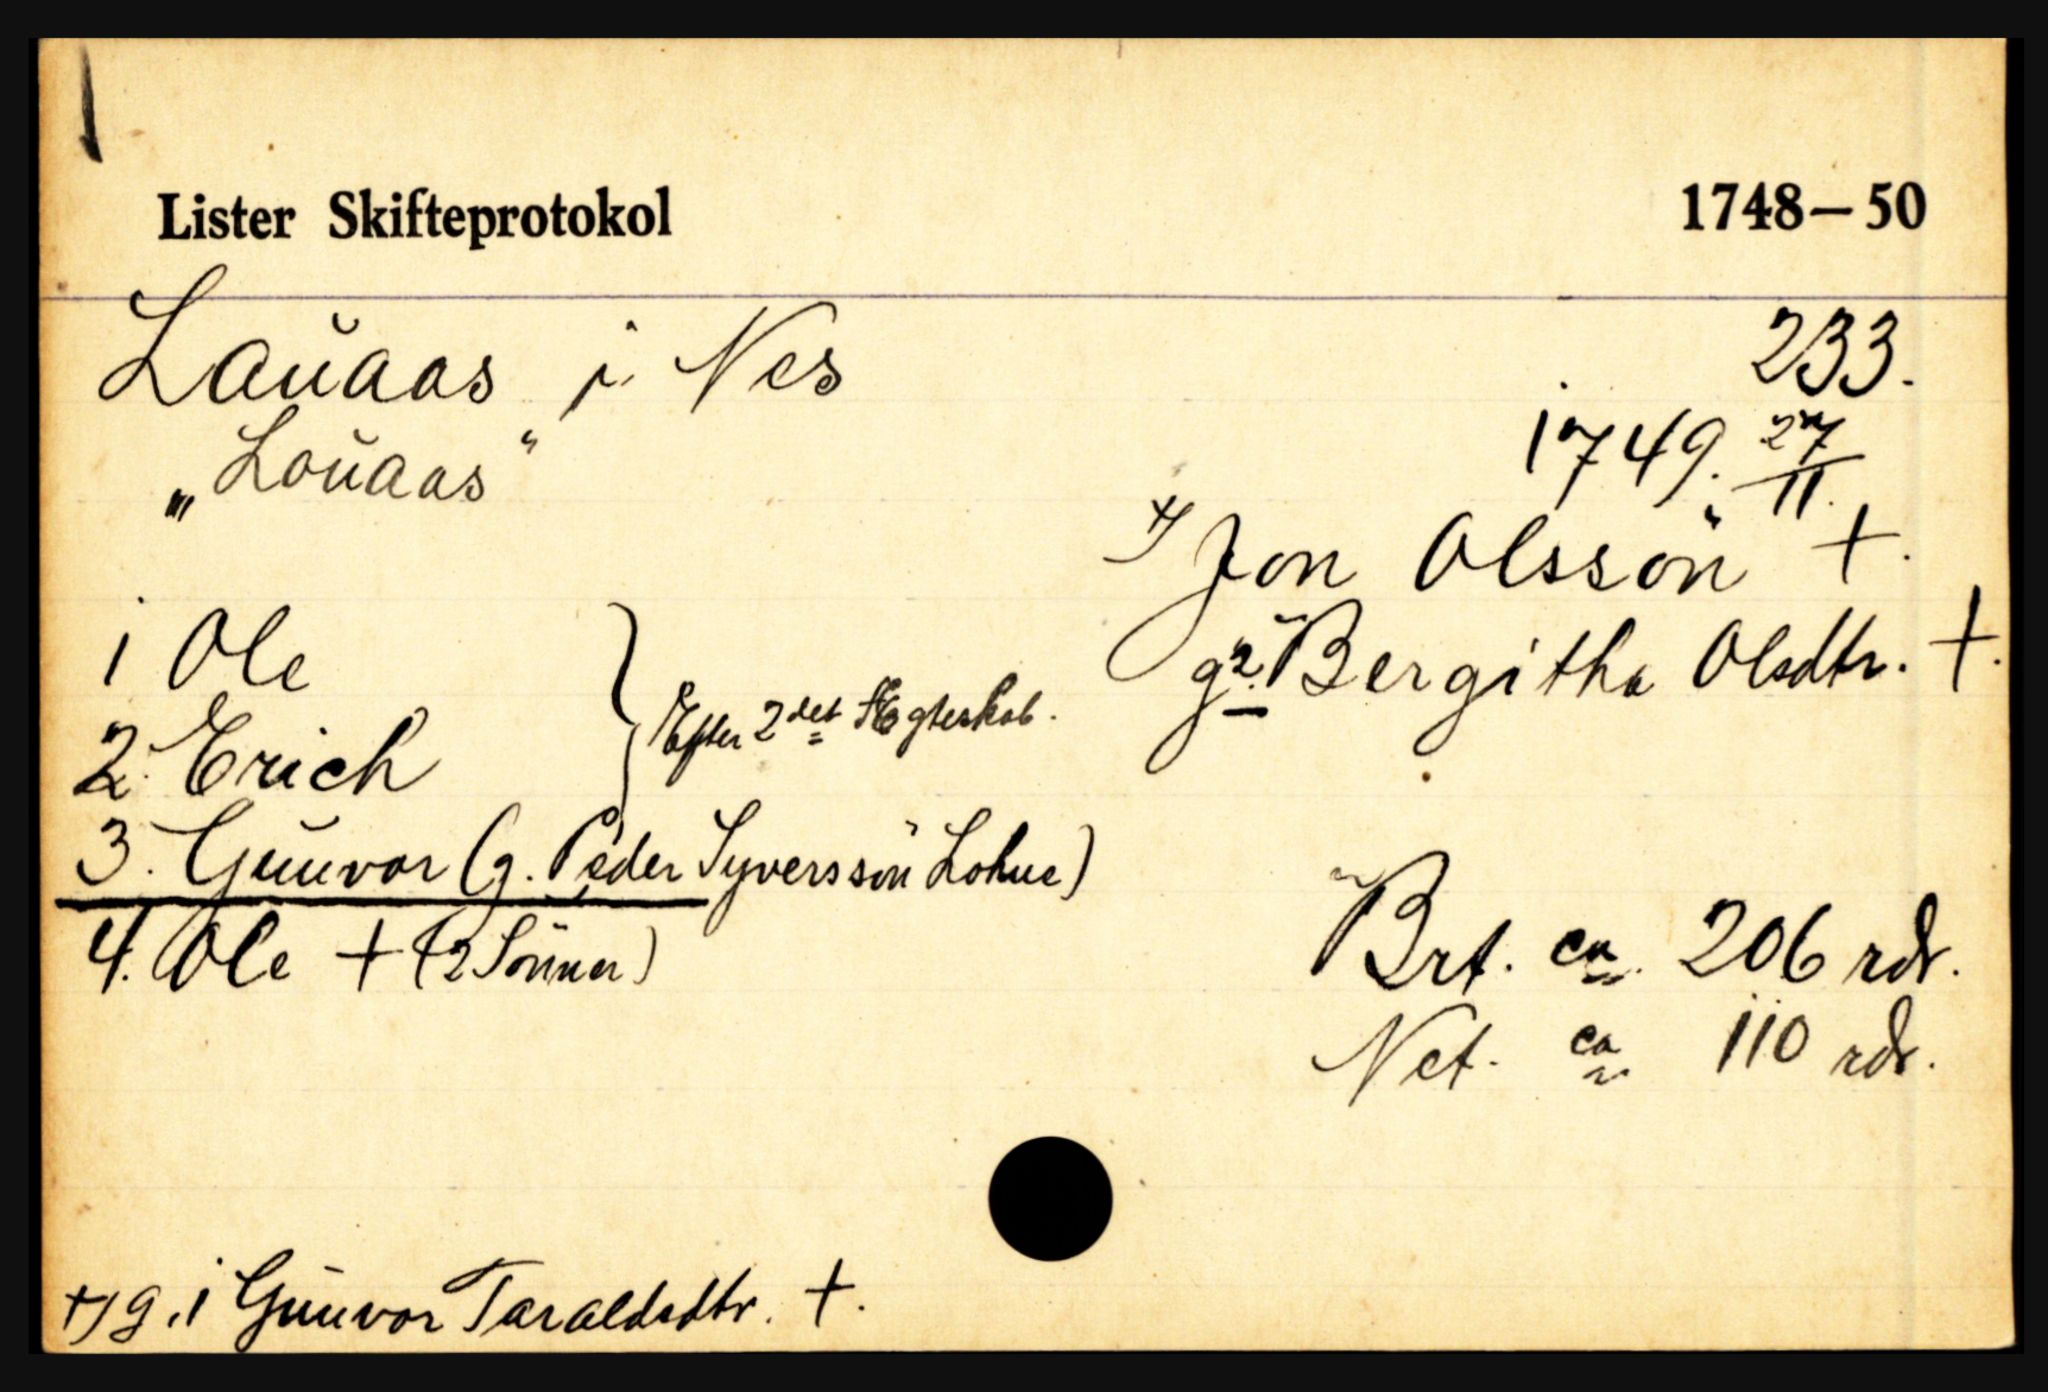 Lister Skifteprotokol 1748–50
Lauaas i Nes 233.
"Louaas" 1749. 27/11.
+) Jon Olssön +.
g. 2. Bergitha Olsdtr. +.
1 Ole
2. Erich } Efter 2det Ægteskab.
3. Gunvor (g. Peder Syverssön Lohne)
4. Ole + (2 Sönner)
Brt. ca. 206 rdr.
Net. ca 110 rdr.
+) g. 1 Gunvor Taraldsdtr. +.